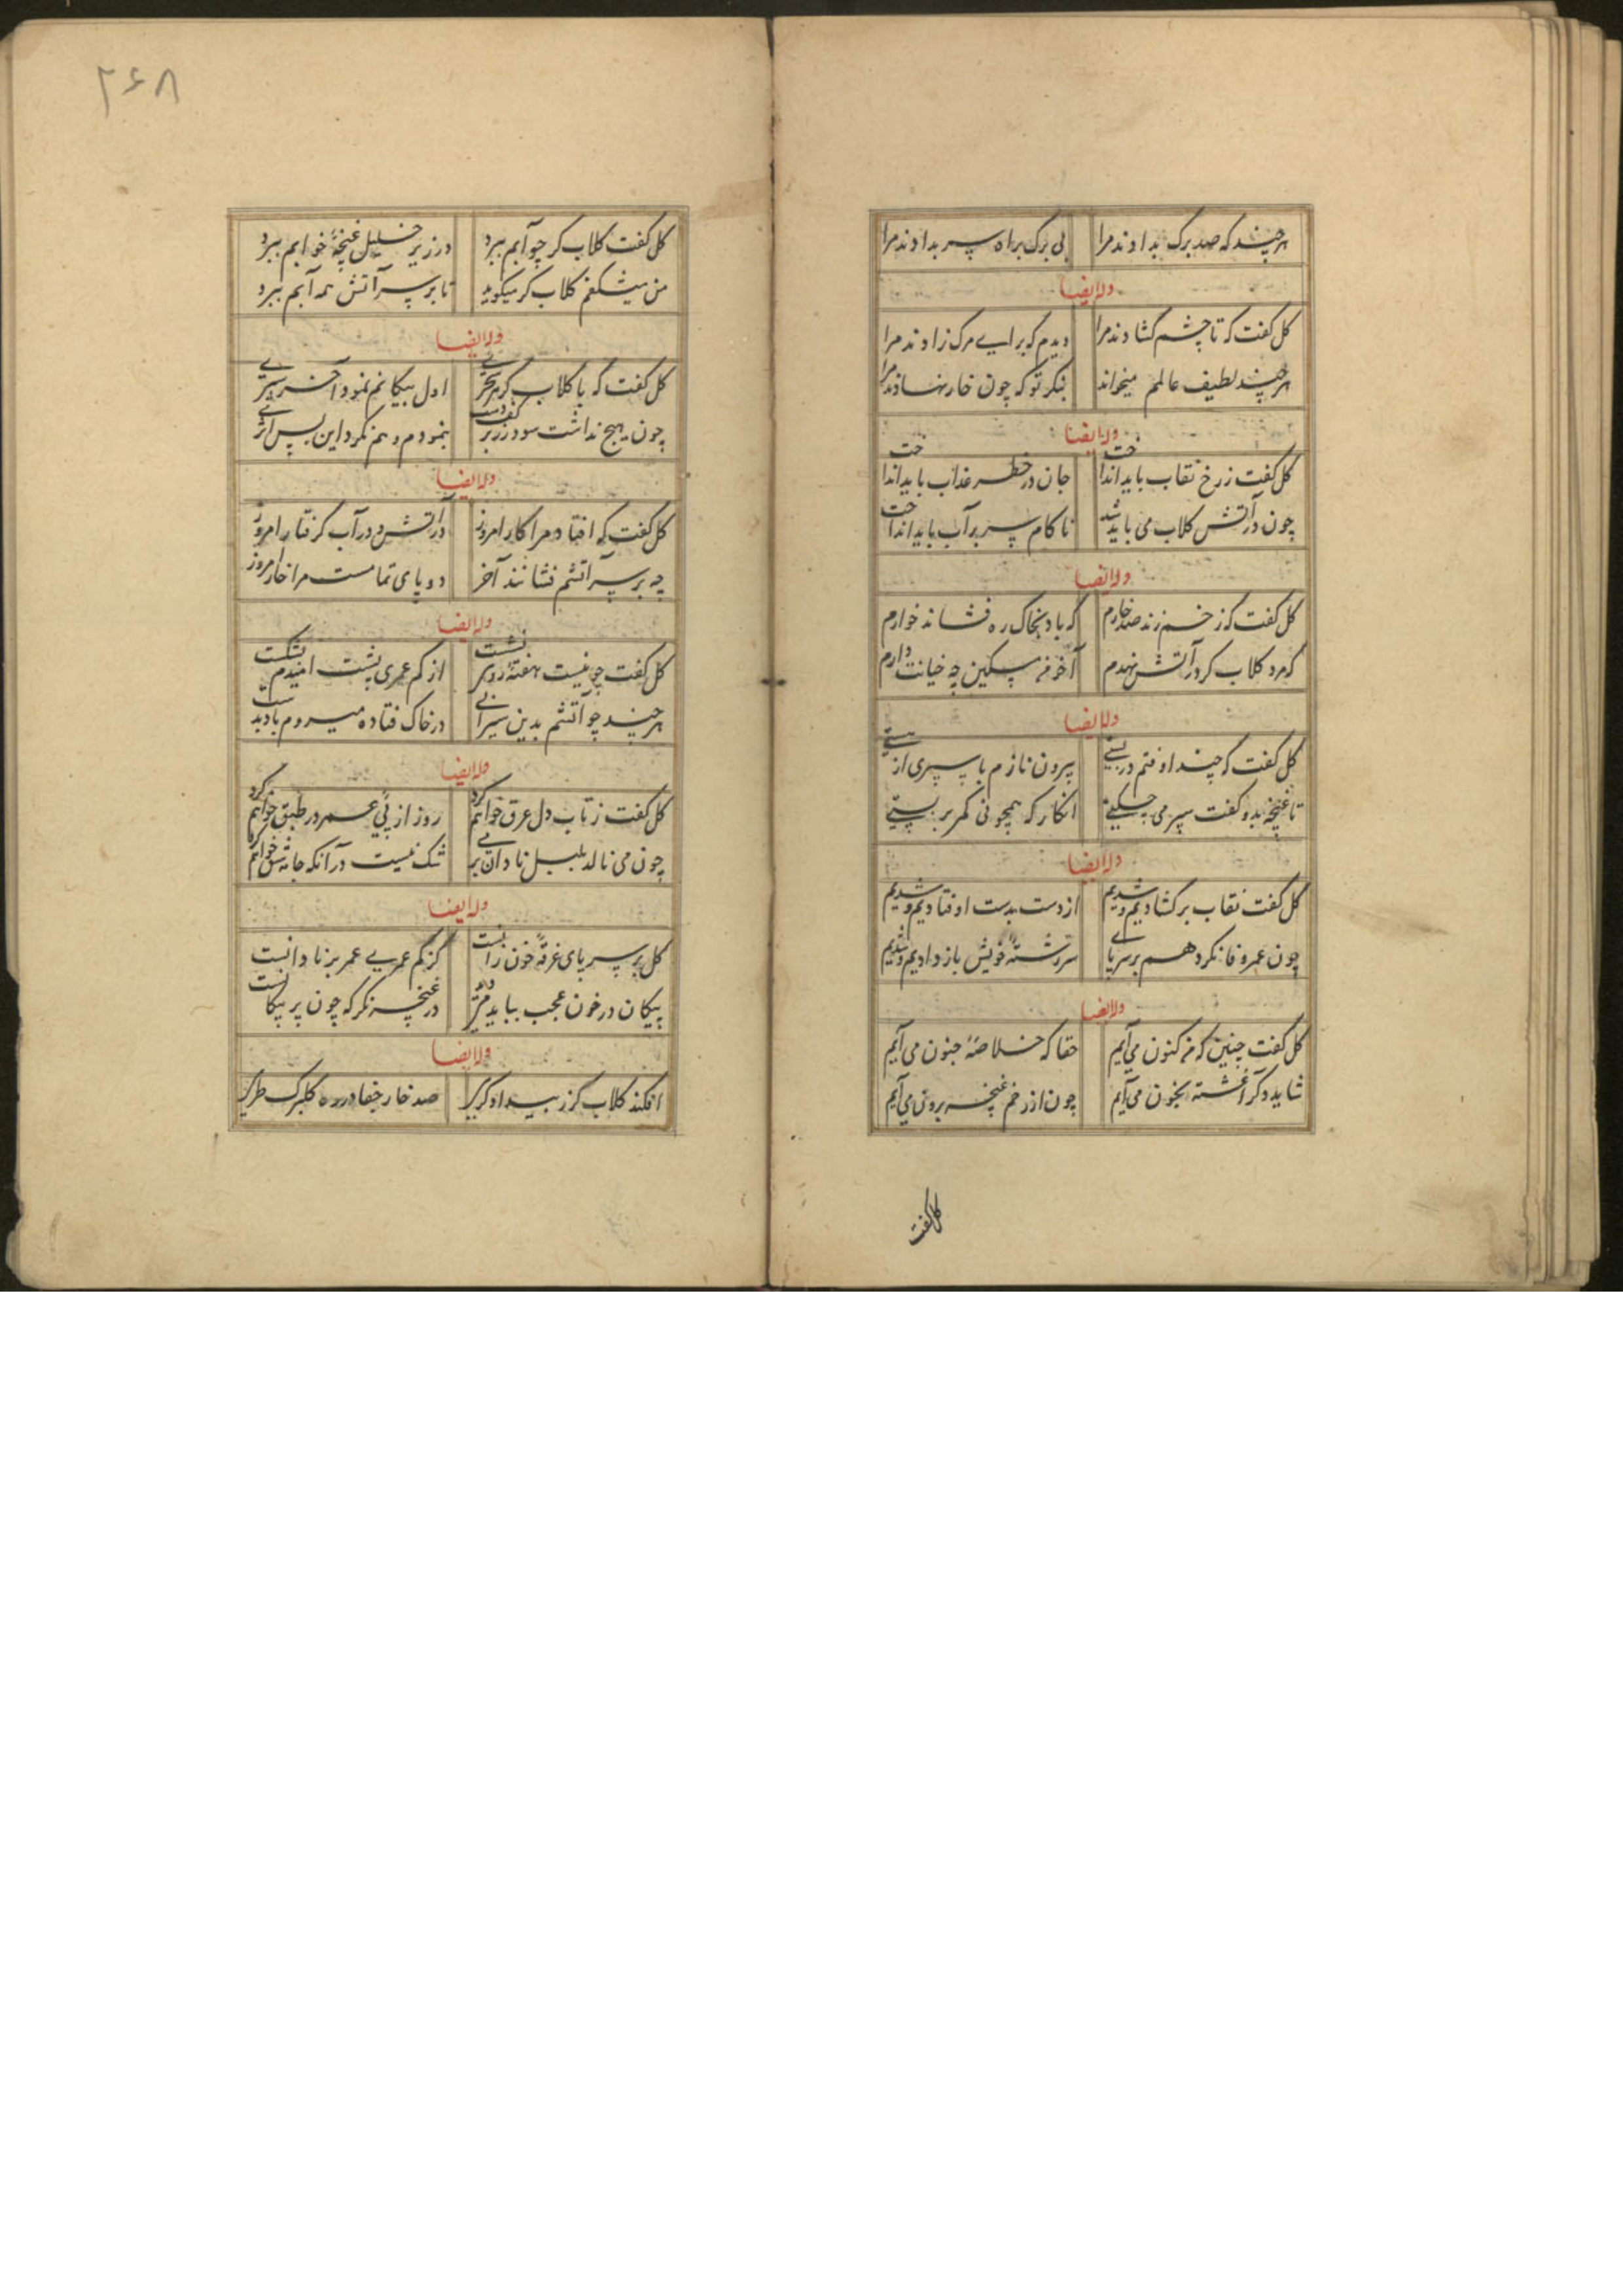 هر چند که صد برگ بدادند مرا بی برگ براه سر بدادند مرا
وله ایضا
کل کفت که تا چشم کشادند مرا دیدم که برای مرک زادند مرا
هر چند لطیف عالمم میخواند بنکر تو که چون خار نهادند مرا
وله ایضا
کل کفت ز رخ نقاب باید انداخت جان در خطر عذاب باید انداخت
چون در آتش کلاب می باید شد ناکام سپر بر آب باید انداخت
وله ایضا
کل کفت کز زخم زند صد خارم که باد بخاک ره فشاند خوارم
که مرد کلاب کر در آتش نهدم آخر من مسکین چه خیانت دارم
وله ایضا
کل کفت که چند اوفتم در پستی بیرون تازم با سپری از
تا غنچه بدو کفت سپر می انکار که همچو نی کمر بر بستی
وله ایضا
کل کفت نقاب بر کشادیم و شدیم از دست بدست اوفتادیم و شدیم
چون عمر وفا نکرد هم بر سر پای سر رشتهٔ خویش باز دادیم و شدیم
وله ایضا
کل کفت چنین که من کنون می آیم حقا که خلاصهٔ جنون می آیم
شاید که آغشته بخون می آیم چون از رحم غنچه برون می آیم
کل کفت
۲۶۸
کل کفت کلاب کر چو آبم ببرد در زیر غنچهٔ خوابم ببرد
من میشکفم کلاب کر میکوید تا بر سر آتش همه آبم ببرد
وله ایضا
کل کفت که با کلاب کر هر سحری اول پیکانم نمود آخر سپری
چون هیچ نداشت سود زر بر کف دست بنمودم و هم نکرد این پس اثری
وله ایضا
کل کفت که افتاد مرا کار امروز در آتش و در آب کرفتار امروز
چه بر سر آتشم نشانند آخر در پای تمامست مرا خار امروز
وله ایضا
کل کفت چو نیست هفتهٔ روی نشست از کم عمری پشت امیدم بشکست
هر چند چو آتشم بدین سیرابی در خاک فتاده میروم باد بدست
وله ایضا
کل کفت ز تاب دل عرق خواهم کرد روز از پی عمر در طبق خواهم کرد
چون می نالد بلبل نادان بر من شک نیست در آنکه جامه شق خواهم کرد
وله ایضا
کل بر سر پای غرقهٔ خون زانست کز کم عمری عمر برنا دانست
پیکان در خون عجب بباید در غنچه نکر که چون پر پیکانست
وله ایضا
افکند کلاب کر ز بیداد کری صد خار جفا در ره کلبرک طری